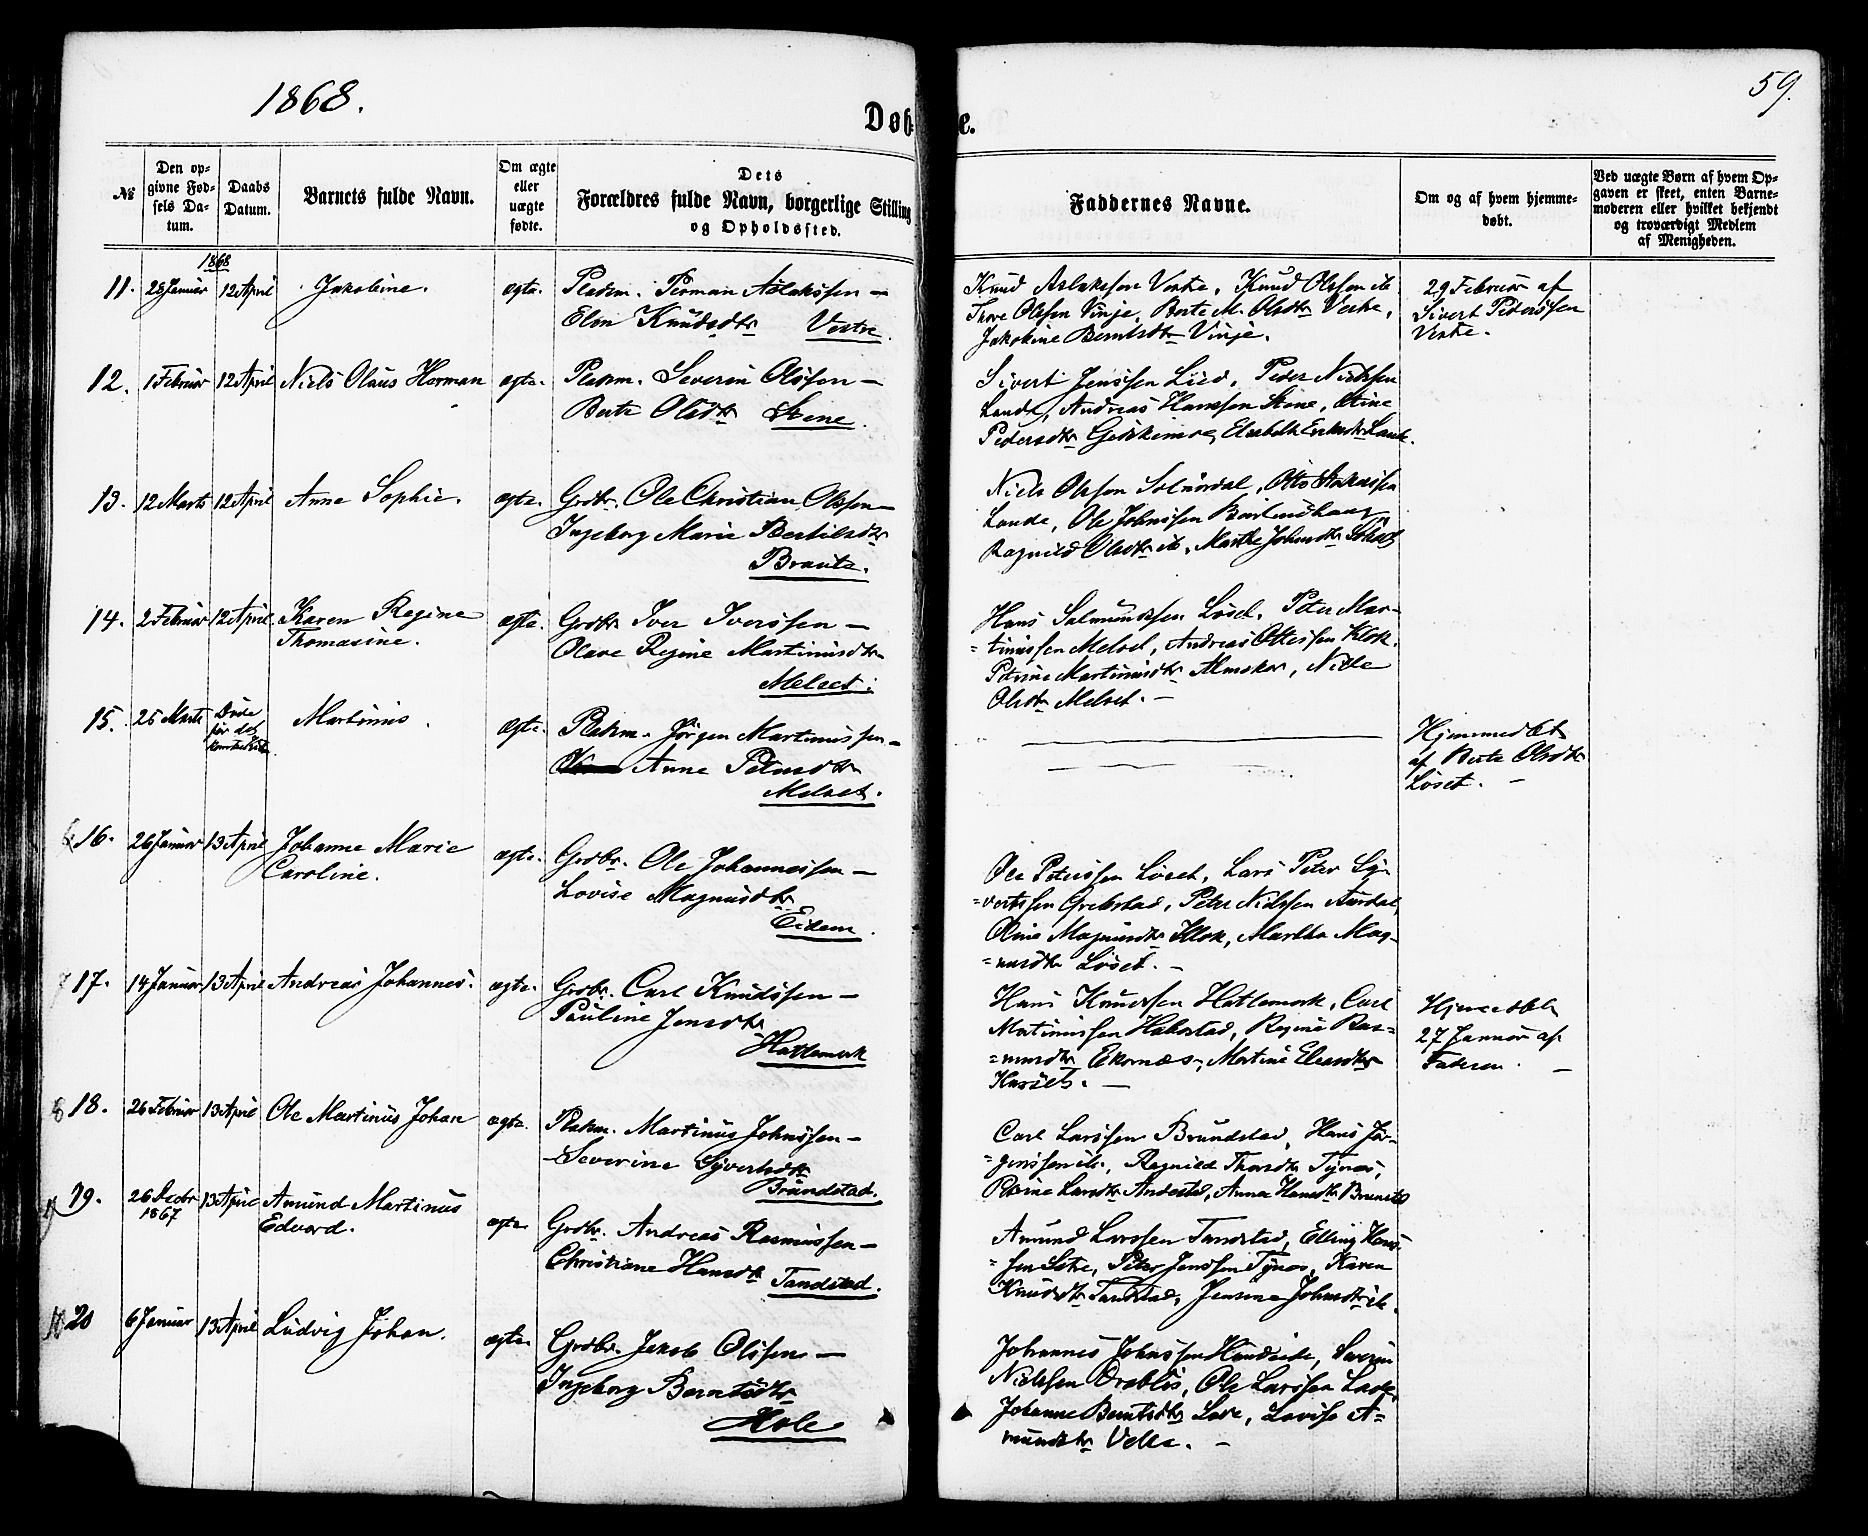 1868.
59.
Døbte.
№
Den opgivne Fødsels Datum.
Daabs Datum.
Barnets fulde Navn.
Om ægte eller uægte fødte.
Dets Forældres fulde Navn, borgerlige Stilling og Opholdssted.
Faddernes Navne.
Om og af hvem hjemmedøbt.
Ved uægte Børn af hvem Opgaven er skeet, enten Barnemoderen eller hvilket bekjendt og troværdigt Medlem af Menigheden.
1868
11. 28 Januar 12 April Jakobine. ægte. Pladsm. Aslakssen —
Elen Knudsdtr Vestre
Knud Aslakssen Vestre, Knud Olssen ib
Thore Olssen Vinje, Berte M. Olsdtr Vestre,
Jakobine Berntsdtr Vinje.
29 Februar af
Sivert Pederssen
Vestre.
12. 1 Februar 12 April Niels Olaus Herman ægte. Pladsm. Severin Olssen —
Berte Olsdtr Stene.
Sivert Jenssen Lied, Peder Nielssen
Lande, Andreas Hanssen Stene, Oline
Pedersdtr Gjerskemoe, Elisabeth Eriksdtr Lande.
13. 12 Marts 12 April Anne Sophie. ægte. Grdbr. Ole Christian Olssen —
Ingeborg Marie Bertilsdtr
Brauta.
Niels Olssen Solnørdal, Otto
Lande, Ole Johnssen
Ragnild Olsdtr ib, Marthe Johnsdtr
14. 2 Februar 12 April Karen Regine
Thomasine. ægte. Grdbr Iver Iverssen —
Olave Regine Martinusdtr
Melset.
Hans Salmundssen Løset, Peter Mar-
=tinussen Melset, Andreas Ottessen Klok.
Petrine Martinusdtr Almskar,
Olsdtr Melset. —
15. 25 Marts Døde
før det
Martinus. ægte. Pladsm. Jørgen Martinussen —
Anne Petersdtr
Melset.
Hjemmedøbt
af Berte Olsdtr
Løset. —
16. 26 Januar 13 April Johanne Marie
Caroline. ægte. Grdbr. Ole Johannessen —
Lovise Magnusdtr
Eidem.
Ole Peterssen Løset, Lars Peter Sy-
=vertssen Grebstad, Peter Nielssen Aurdal,
Oline Magnusdtr Klok, Martha Mag-
=nusdtr Løset. —
17. 14 Januar 13 April Andreas Johannes. ægte. Grdbr. Carl Knudssen —
Pauline Jensdtr
Hatlemark
Hans Knudssen Hatlemark, Carl
Martinussen Habostad, Regine Ras-
=musdtr Ekornæs, Martine Eliasdtr
—
Hjemmedøbt
27 Januar af
Faderen. —
18. 26 Februar 13 April Ole Martinus Johan ægte. Pladsm. Martinus Johnssen —
Severine Syvertsdtr
Brundstad.
Carl Larssen Brundstad, Hans Jør-
=genssen ib., Ragnild Thorsdtr Tynes,
Larsdtr Andestad, Anna Hansdtr Brunstad
19. 26 Decbr
1867 13 April Amund Martinus
Edvard. ægte. Grdbr. Andreas Rasmussen —
Christiane Hansdtr Tandstad.
Amund Larssen Tandstad, Elling Hans-
=sen Sætre, Peter Jenssen Tynes, Karen
Knudsdtr Tandstad, Jensine Johnsdtr ib.
20 6 Januar 13 April Ludvig Johan. ægte. Grdbr. Jakob Olssen —
Ingeborg Berntsdtr
Hole
Johannes Johnssen Hundeide, Severin
Nielssen Drabløs, Ole Larssen Lade,
Johanne Berntsdtr Lade, Lovise A-
=mundsdtr Velle. —